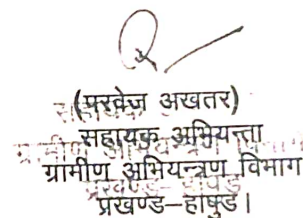 (परवेज अखतर)
सहायक अभियन्ता
ग्रामीण अभियन्त्रण विभाग
प्रखण्ड–हापुड।